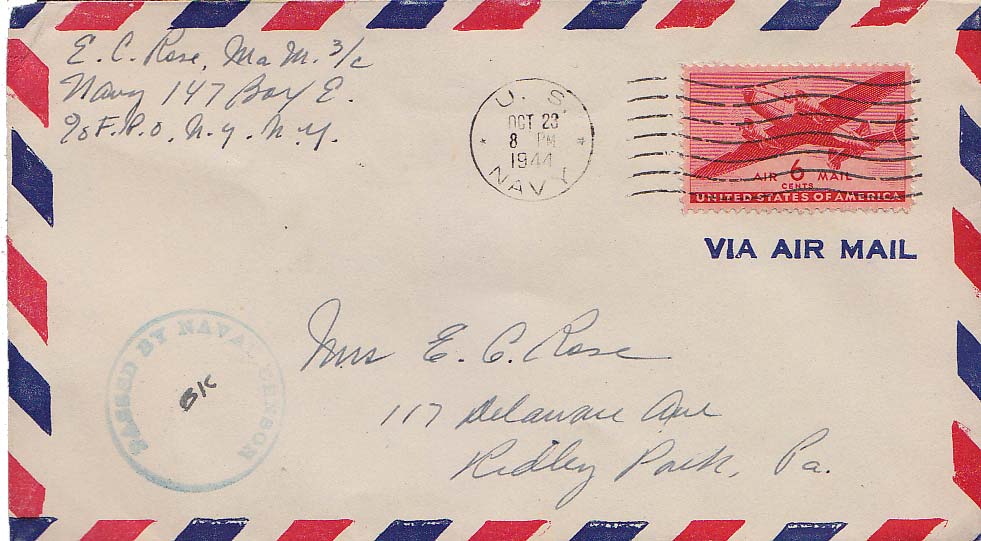 E. C. Rose, MaM. 3/c
Navy 147 Box E.
℅ F.P.O. N.Y. N.Y.
U. S.
OCT 23
8 PM
1944
NAVY
AIR 6 MAIL
CENTS
UNITED STATES OF AMERICA
VIA AIR MAIL
PASSED BY NAVAL CENSOR
Mrs E. C. Rose
117 Delaware Ave
Ridley Park, Pa.